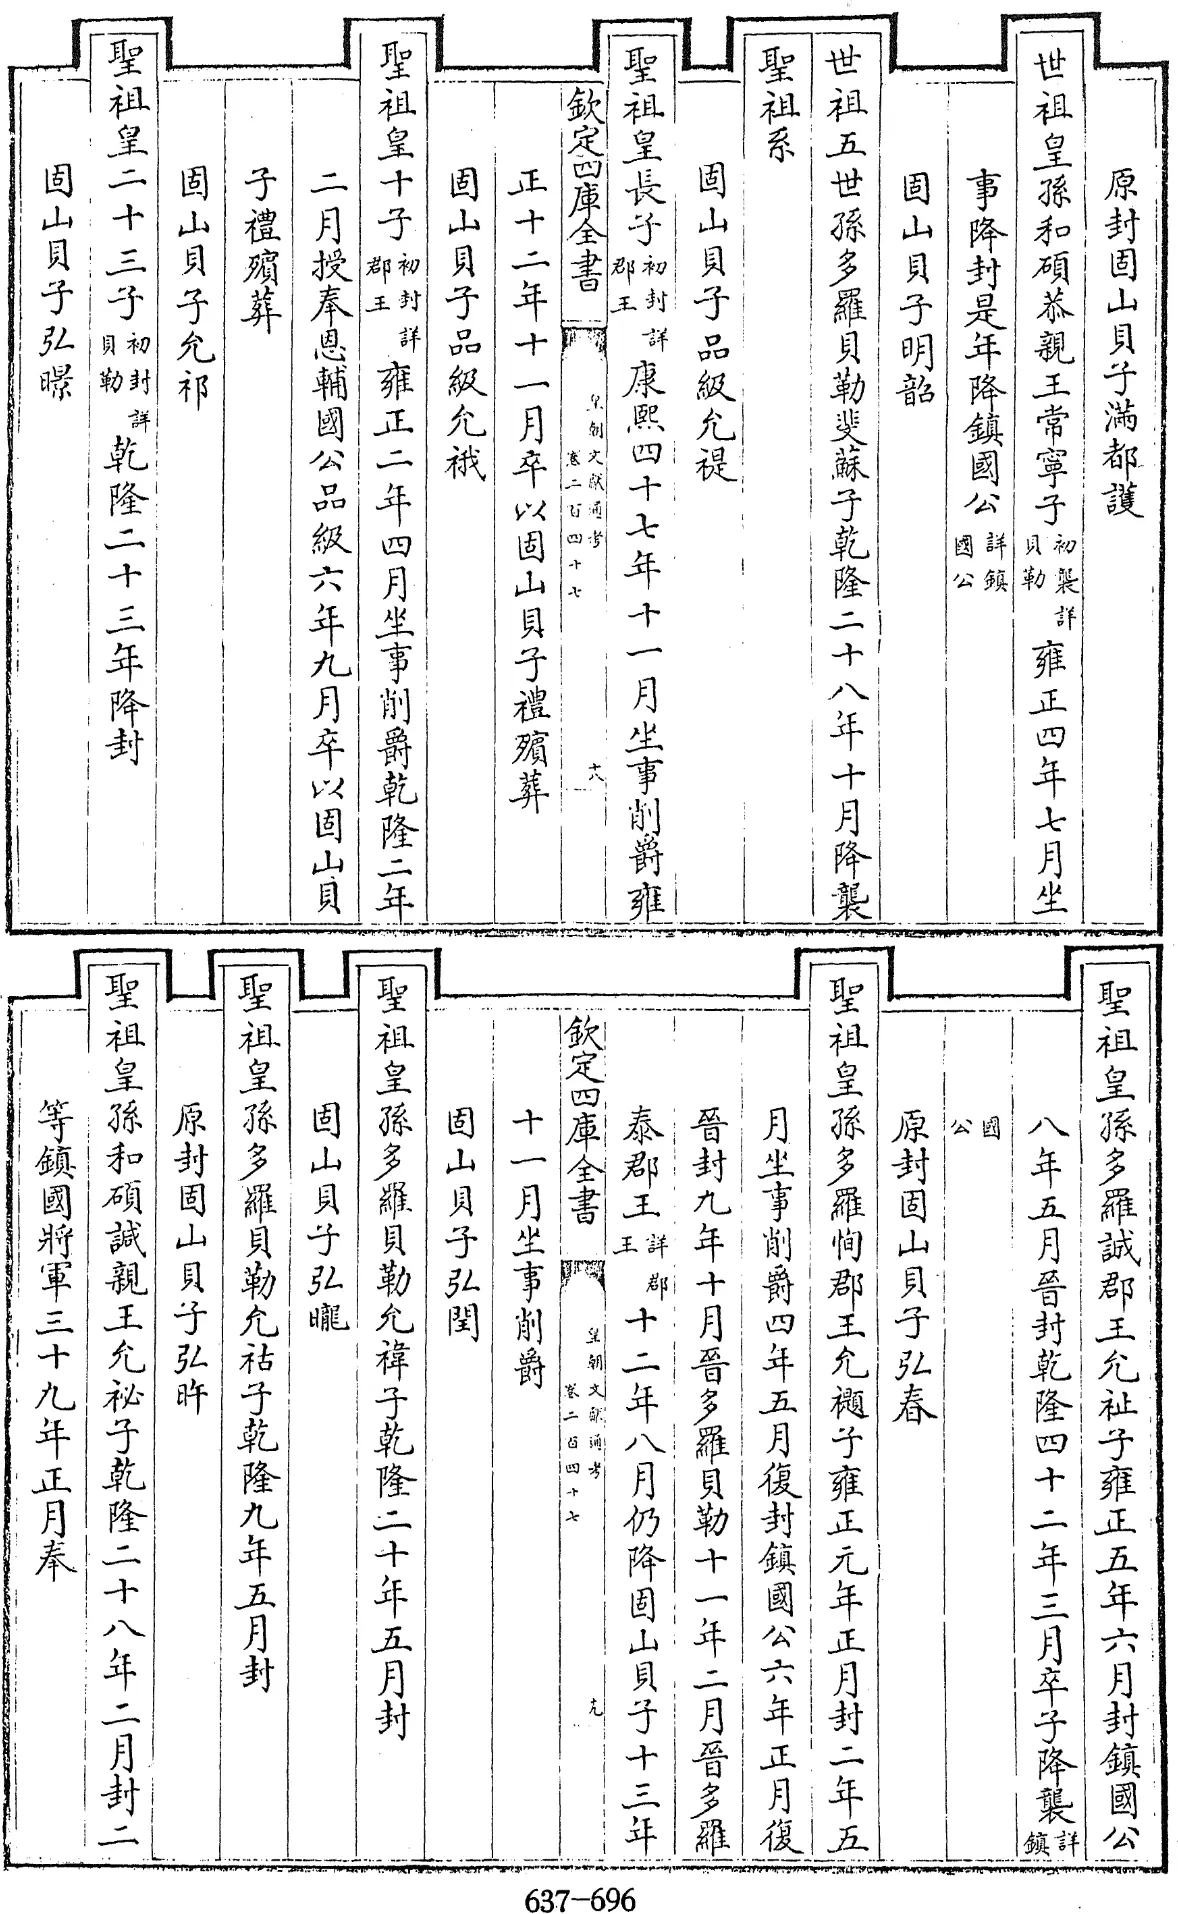 原封固山貝子滿都護
世祖皇孫和碩恭親王常寧子初襲詳貝勒雍正四年七月坐
事降封是年降鎮國公詳鎮國公
固山貝子明韶
世祖五世孫多羅貝勒斐蘇子乾隆二十八年十月降襲
聖祖系
固山貝子品級允禔
聖祖皇長子初封詳郡王康熙四十七年十一月坐事削爵雍
欽定四庫全書
皇朝文獻通考
卷二百四十七
十八
正十二年十一月卒以固山貝子禮殯葬
固山貝子品級允䄉
聖祖皇十子初封詳郡王雍正二年四月坐事削爵乾隆二年
二月授奉恩輔國公品級六年九月卒以固山貝
子禮殯葬
固山貝子允祁
聖祖皇二十三子初封詳貝勒乾隆二十三年降封
固山貝子弘暻
聖祖皇孫多羅誠郡王允祉子雍正五年六月封鎮國公
八年五月晉封乾隆四十二年三月卒子降襲詳鎮
國公
原封固山貝子弘春
聖祖皇孫多羅恂郡王允禵子雍正元年正月封二年五
月坐事削爵四年五月復封鎮國公六年正月復
晉封九年十月晉多羅貝勒十一年二月晉多羅
泰郡王詳郡王十二年八月仍降固山貝子十三年
欽定四庫全書
皇朝文獻通考
卷二百四十七
十九
十一月坐事削爵
固山貝子弘閏
聖祖皇孫多羅貝勒允禕子乾隆二十年五月封
固山貝子弘曨
聖祖皇孫多羅貝勒允祜子乾隆九年五月封
原封固山貝子弘旿
聖祖皇孫和碩諴親王允祕子乾隆二十八年二月封二
等鎮國將軍三十九年正月奉
637-696